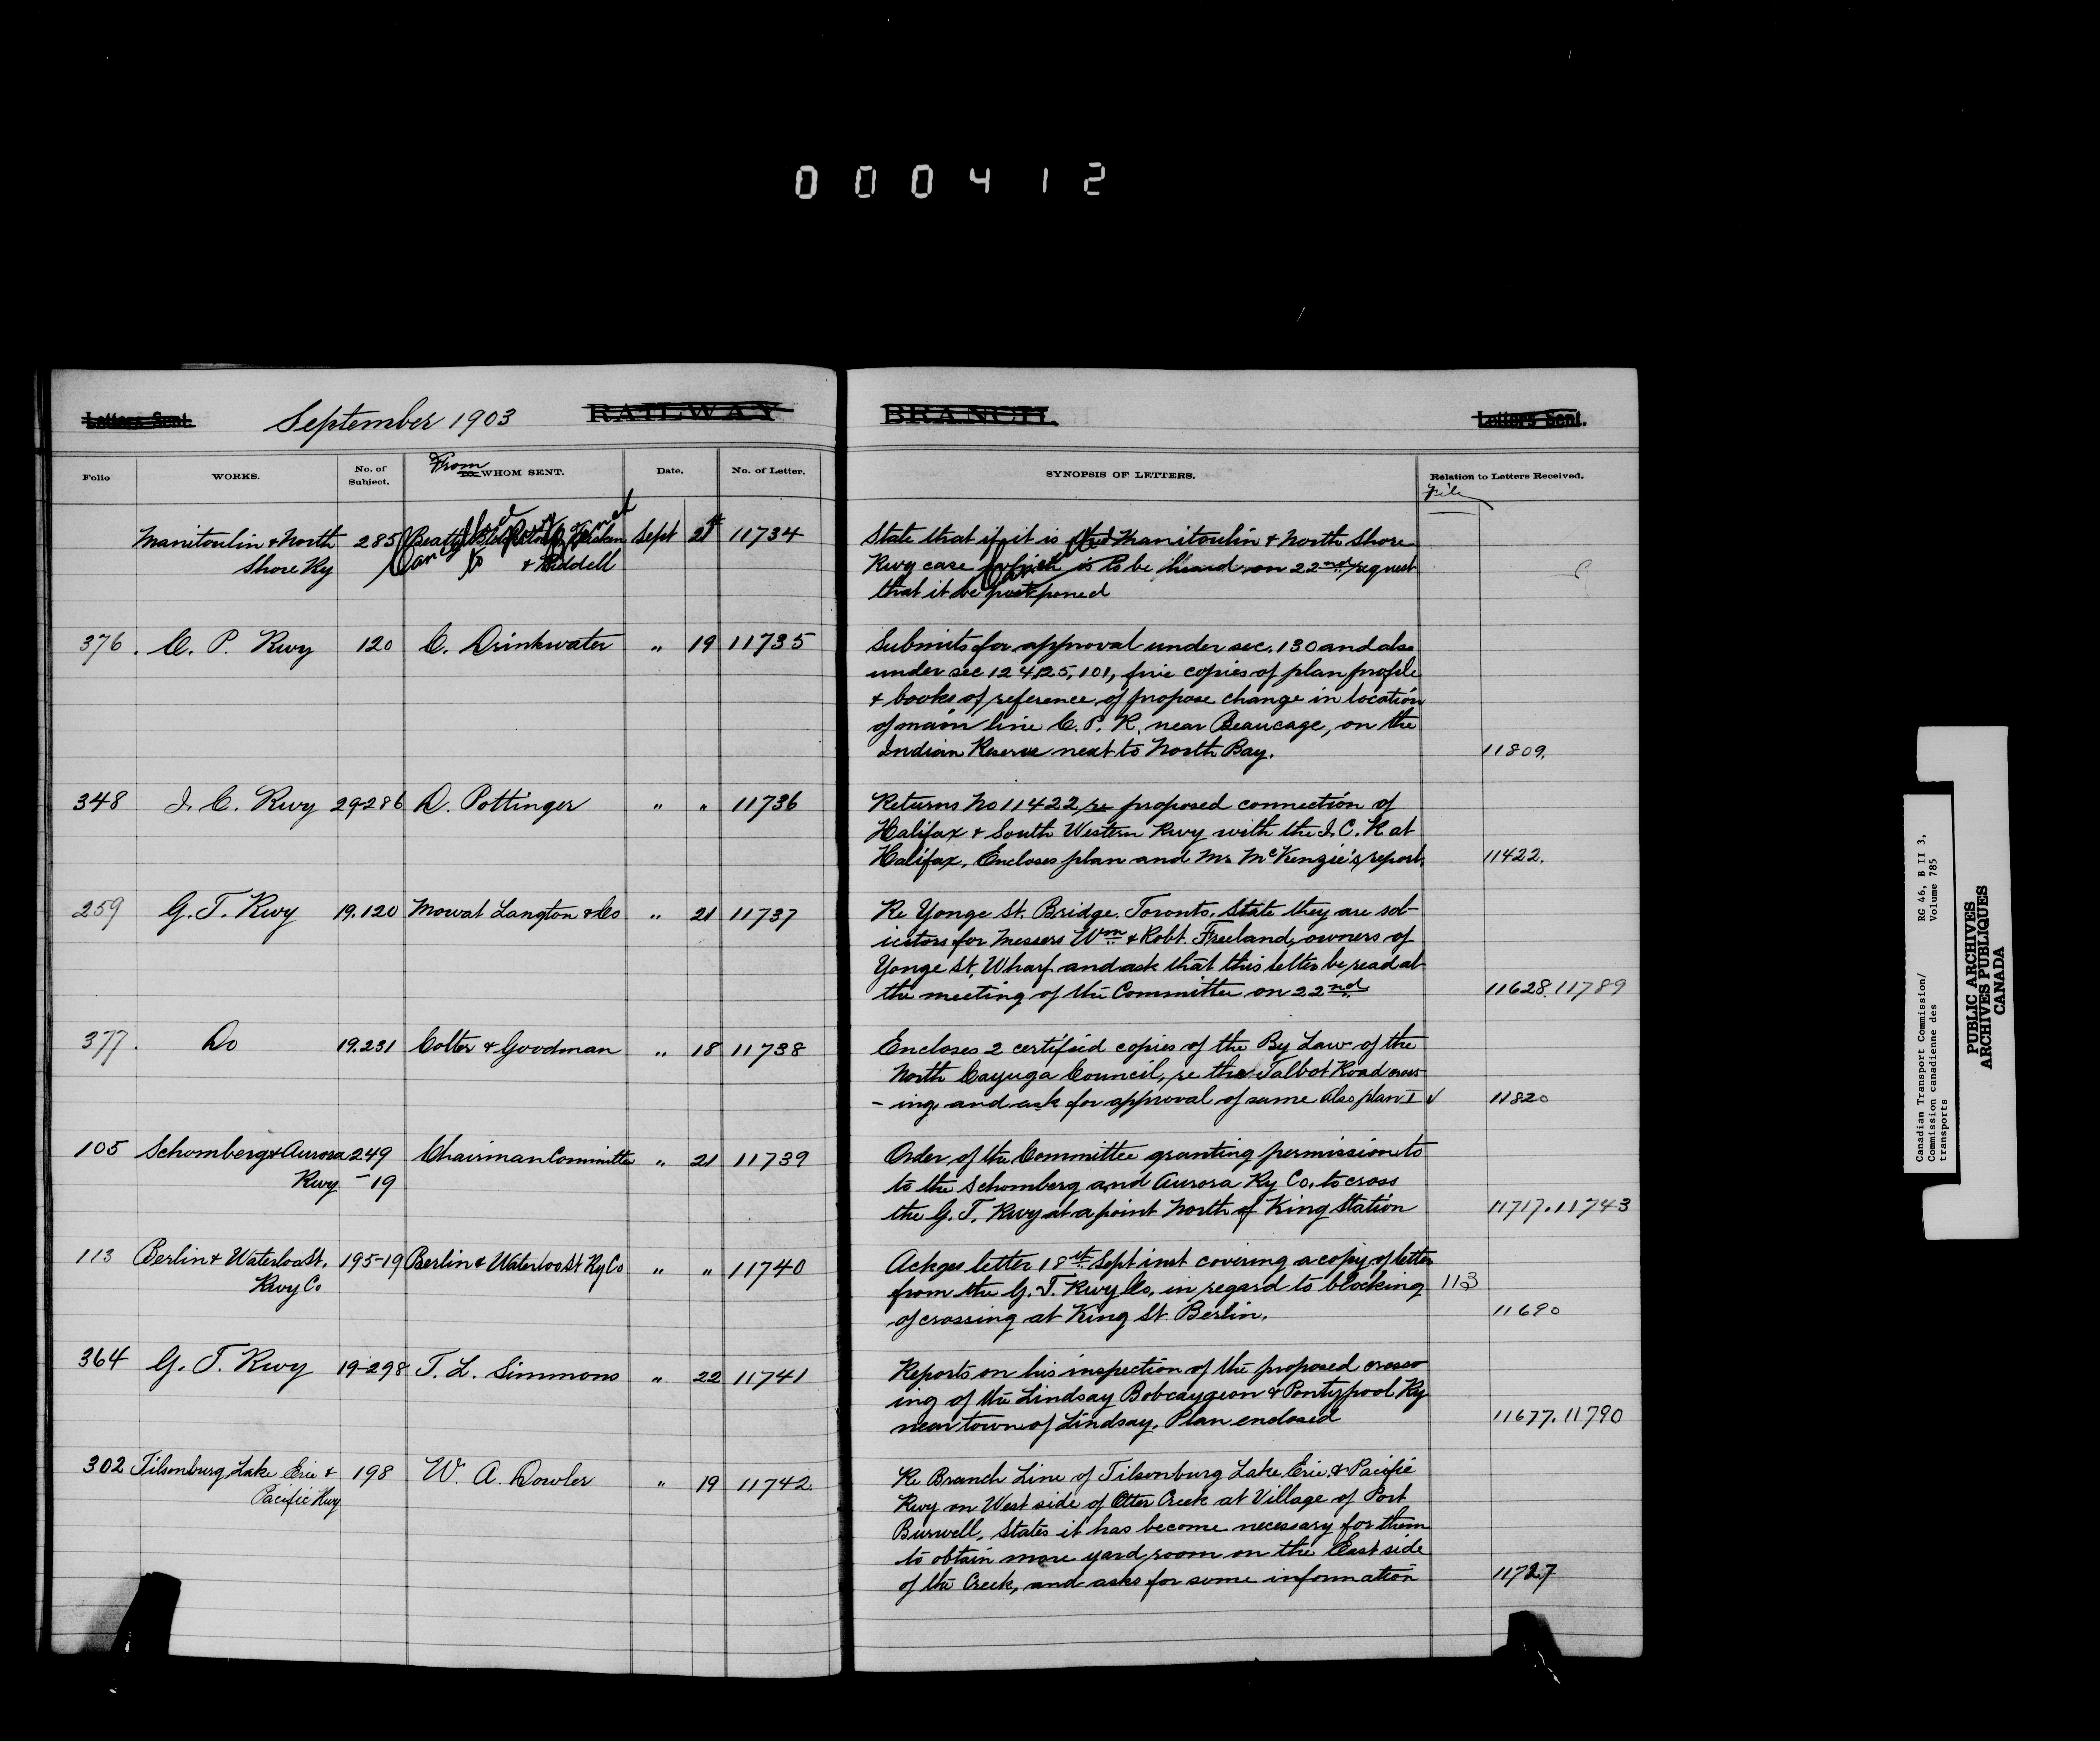 000412
Letters Sent. September 1903 RAILWAY BRANCH. Letters Sent.
Folio WORKS. No. of Subject. From TO WHOM SENT. Date. No. of Letter. SYNOPSIS OF LETTERS. Relation to Letters Received.
File
Manitoulin & North 285 Beatty Sept 21st 11734 State that if it is Manitoulin & North Shore
Shore Ry & Riddell Rwy case which is to be heard on 22nd, request
that it be postponed
376. C. P. Rwy 120 C. Drinkwater " 19 11735 Submits for approval under sec. 130 and also
under sec 124, 125, 101, five copies of plan profile
& books of reference of propose change in location
of main line C. P. R. near Beaucage, on the
Indian Reserve next to North Bay. 11809.
348 I. C. Rwy 29-286 D. Pottinger " " 11736 Returns No 11422 re proposed connection of
Halifax & South Western Rwy with the I. C. R at
Halifax, Encloses plan and Mr McKenzie's report. 11422.
259 G. T. Rwy 19.120 Mowat Langton & Co " 21 11737 Re Yonge St. Bridge. Toronto. State they are sol-
icitors for Messers Wm & Robt. Freeland, owners of
Yonge St. Wharf and ask that this letter be read at
the meeting of the Committee on 22nd 11628. 11789
377. Do 19.231 Colter & Goodman " 18 11738 Encloses 2 certified copies of the By Law of the
North Cayuga Council, re the Talbot Road cross-
- ing, and ask for approval of same also plan I ✓ 11820
105 Schomberg & Aurora 249 Chairman Committee " 21 11739 Order of the Committee granting permission to
Rwy -19 to the Schomberg and Aurora Ry Co. to cross
the G. T. Rwy at a point North of King Station 11717. 11743
113 Berlin & Waterloo St. 195-19 Berlin & Waterloo St Ry Co " " 11740 Ackges letter 18th Sept inst covering a copy of letter
Rwy Co from the G. T. Rwy Co, in regard to blocking 113
of crossing at King St. Berlin. 11690
364 G. T. Rwy 19-298 T. L. Simmons " 22 11741 Reports on his inspection of the proposed cross
ing of the Lindsay Bobcaygeon & Pontypool Ry
near town of Lindsay. Plan enclosed 11677. 11790
302 Tilsonburg Lake Erie & 198 W. A. Dowler " 19 11742. Re Branch Line of Tilsonburg Lake Erie & Pacific
Pacific Rwy Rwy on West side of Otter Creek at Village of Port
Burwell, States it has become necessary for them
to obtain more yard room on the East side
of the Creek, and asks for some information 11727
Canadian Transport Commission/ RG 46, B II 3,
Commission canadienne des Volume 785
transports
PUBLIC ARCHIVES
ARCHIVES PUBLIQUES
CANADA